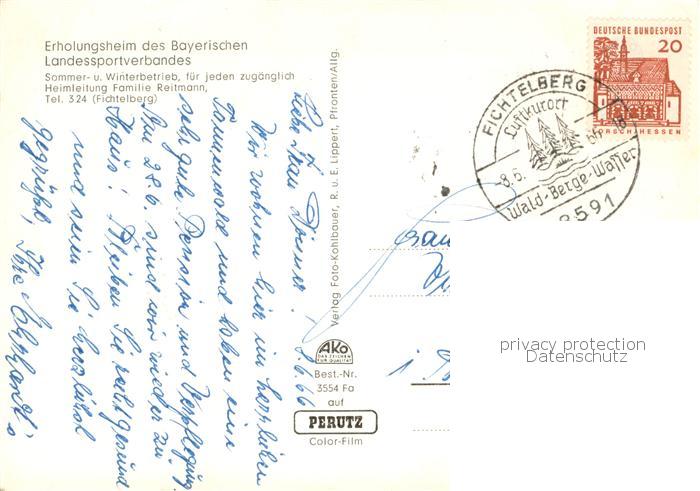 Erholungsheim des Bayerischen
Landessportverbandes
Sommer- u. Winterbetrieb, für jeden zugänglich
Heimleitung Familie Reitmann,
Tel. 324 (Fichtelberg)
8.6.66
Liebe Frau
Wir wohnen hier im herrlichen
Tannenwald und haben eine
sehr gute Pension und Verpflegung.
Am 28.6. sind wir wieder zu
Haus! Bleiben Sie recht gesund
und sein Sie herzlichst
gegrüßt, Ihre
Verlag Foto-Kohlbauer, R. u. E. Lippert, Pfronten/Allg.
AKO
DAS ZEICHEN
FÜR QUALITÄT
Best.-Nr.
3554 Fa
auf
PERUTZ
Color-Film
DEUTSCHE BUNDESPOST
20
LORSCH/HESSEN
FICHTELBERG
Luftkurort
Wald-Berge-Wasser
8591
privacy protection
Datenschutz